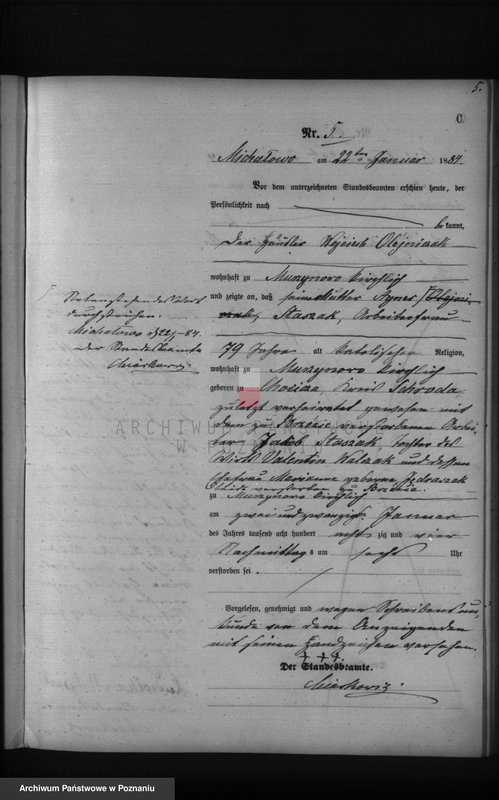 5.
C.
Nr. 5.
Michałowo am 22ten Januar 1884.
Vor dem unterzeichneten Standesbeamten erschien heute, der
Persönlichkeit nach
be kannt,
der Häusler Wojciech Olejniczak
wohnhaft zu Murzynowo kirchlich
und zeigte an, daß seine Mutter Agnes Olejni-
czak, Staszak, Arbeiterfrau
79 Jahre alt katholischer Religion,
wohnhaft zu Murzynowo kirchlich
geboren zu Kreis Schroda,
zuletzt verheirathet gewesen mit
dem zu verstorbenen Arbei-
ter Jakob Staszak, Tochter des
Wirth Valentin Walczak und dessen
Ehefrau Marianna geborene Jędraszak
beide verstorben zu
zu Murzynowo kirchlich
am zwei und zwanzigsten Januar
des Jahres tausend acht hundert acht zig und vier
Nachmittags um sechs Uhr
verstorben sei.
Vorgelesen, genehmigt und wegen Schreibensun-
kunde von dem Anzeigenden
mit seinem Handzeichen versehen.
+++
Der Standesbeamte.
Nebenstehendes Wort
durchstrichen.
Michałowo d 22/1-84.
Der Standesbeamte
ARCHIWUM PAŃSTWOWE
W POZNANIU
Archiwum Państwowe w Poznaniu